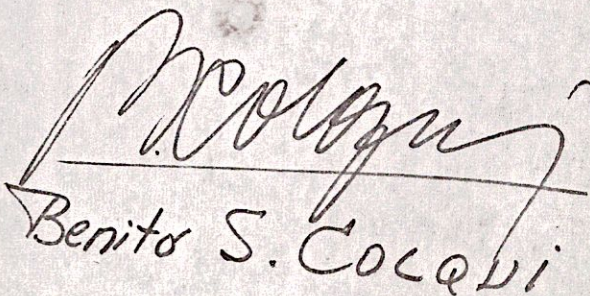 B. Colqui
Benito S. COLQUI